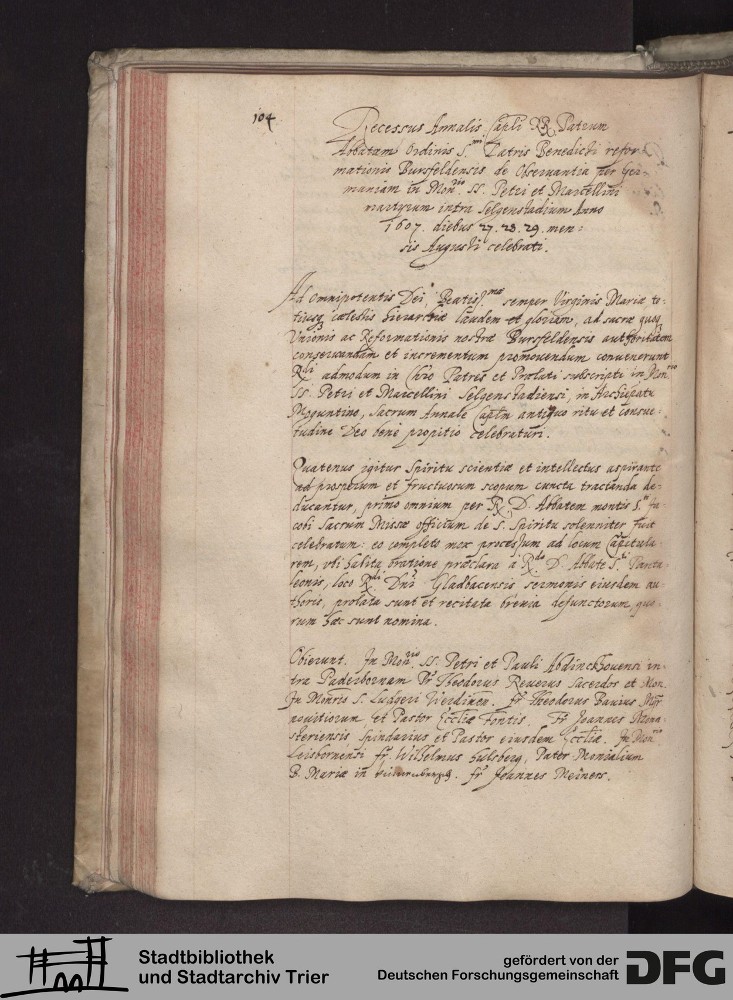 104
Recessus Annalis Capli RR. Patrum
Abbatum Ordinis S.mi Patris Benedicti refor-
mationis Bursfeldensis de Obseruantia per Ger-
maniam in Mon.rio SS. Petri et Marcellini
martyrum intra Selgenstadium Anno
1607. diebus 27. 28. 29. men:
sis Augusti celebrati.
Ad Omnipotentis Dei, Beatiss.mæ semper Virginis Mariæ to:
tiusq3 cœlestis hierarchiæ laudem et gloriam, ad sacræ quoq3
Unionis ac Reformationis nostræ Bursfeldensis authoritatem
conseruandam et incrementum promouendum conuenerunt
R.di admodum in Chro Patres et Prælati subscripti in Mon.rio
SS. Petri et Marcellini Selgenstadiensi, in Archiepatu
Moguntino, Sacrum Annale Caplm antiquo ritu et consue-
tudine Deo bene propitio celebraturi.
Quatenus igitur Spiritu scientiæ et intellectus aspirante
ad prosperum et fructuosum scopum cuncta tractanda de-
ducantur, primo omnium per R. D. Abbatem montis S.ti Ja-
cobi Sacrum Missæ officium de S. Spiritu solenniter fuit
celebratum: eo completo mox processum ad locum Capitula-
rem, vti habita oratione præclara à R.do D. Abbate S.ti Panta-
leonis, loco R.di Dni Gladbacensis sermonis eiusdem au-
thoris, prolata sunt et recitata breuia defunctorum, quo-
rum hæc sunt nomina.
Obierunt. In Mon.rio SS. Petri et Pauli Abdinckhouensi in-
tra Paderbornam Fr Theodorus Reuerus Sacerdos et Mon.
In Monrio S. Ludgeri Uerdinen. Fr Theodorus Bauius Mgr
nouitiorum, et Pastor Eccliæ Fontis. Fr Joannes Mona-
steriensis Spindarius et Pastor eiusdem Eccliæ. In Mon.rio
Leisbornensi fr. Wilhelmus Hulsberg, Pater Monialium
B. Mariæ in fr Joannes Meiners.
Stadtbibliothek
und Stadtarchiv Trier
gefördert von der
Deutschen Forschungsgemeinschaft
DFG